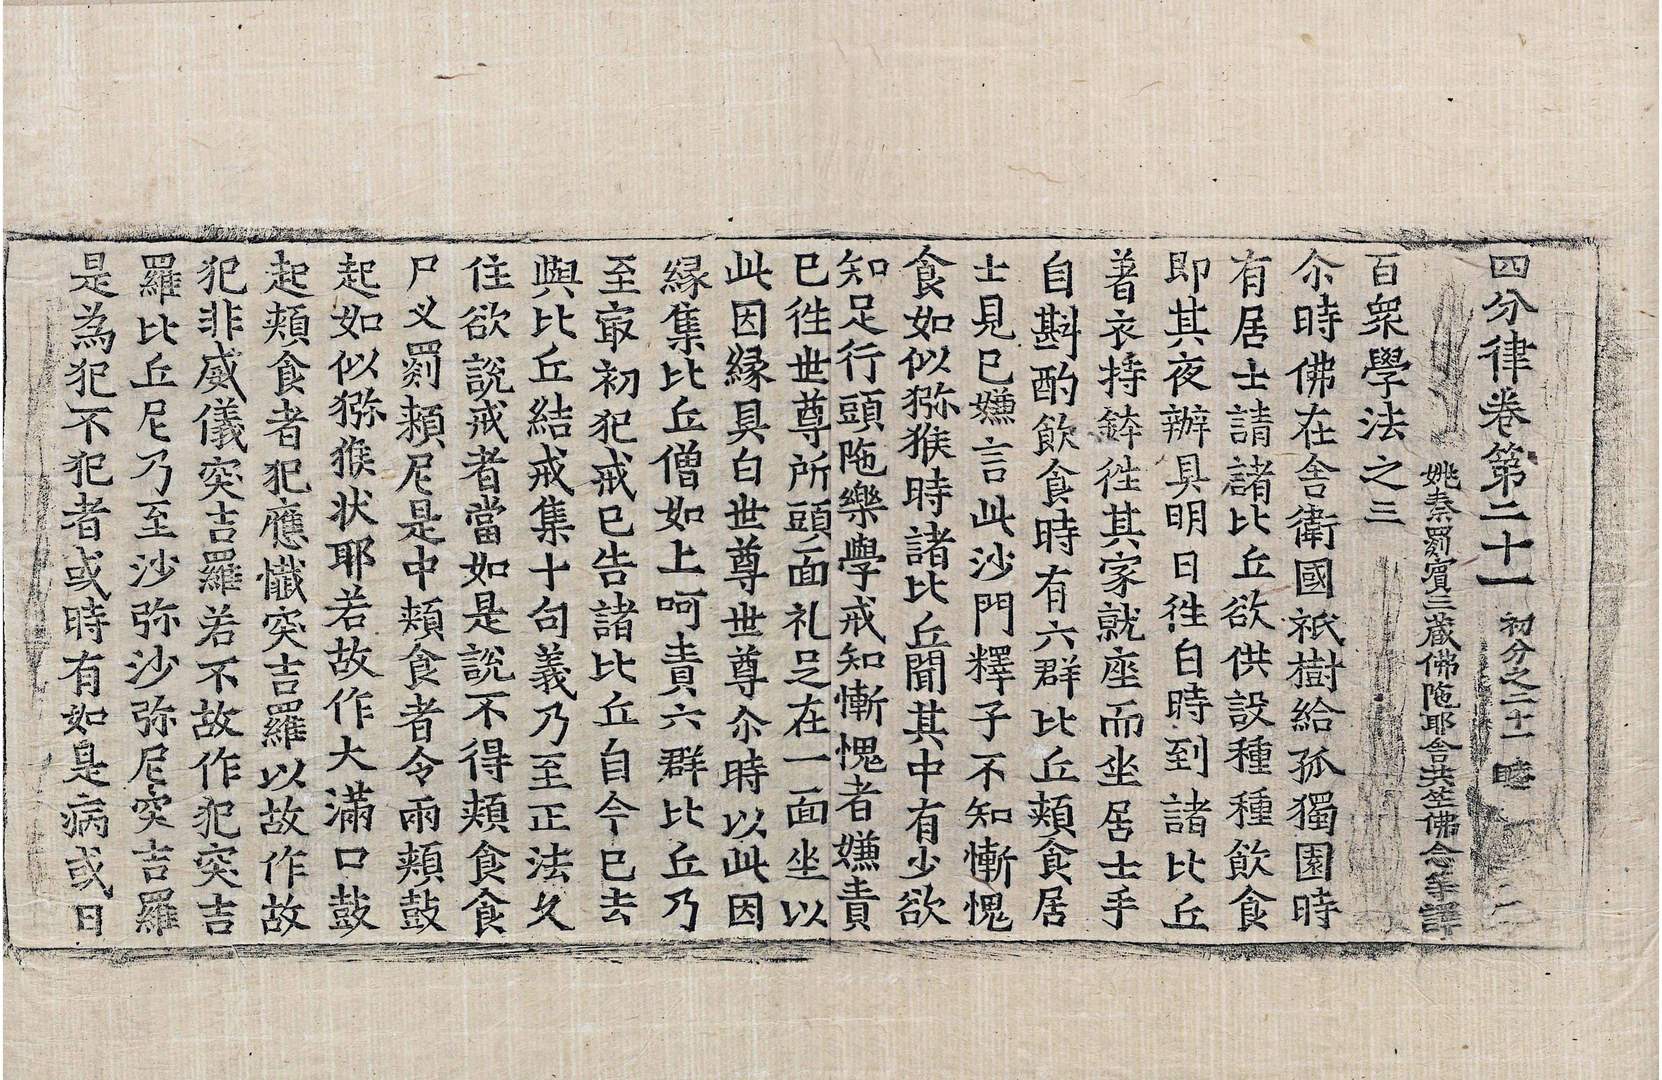 四分律卷第二十一 初分之二十一 睦
姚秦罽賓三藏佛陁耶舍共竺佛念等譯
百衆學法之三
尒時佛在舍衛國祇樹給孤獨園時
有居士請諸比丘欲供設種種飲食
即其夜辦具明日徃白時到諸比丘
著衣持鉢徃其家就座而坐居士手
自斟酌飲食時有六群比丘頰食居
士見已嫌言此沙門釋子不知慚愧
食如似猕猴時諸比丘聞其中有少欲
知足行頭陁樂學戒知慚愧者嫌責
已徃世尊所頭面礼足在一面坐以
此因縁具白世尊世尊尒時以此因
縁集比丘僧如上呵責六群比丘乃
至冣初犯戒已告諸比丘自今已去
與比丘結戒集十句義乃至正法久
住欲說戒者當如是說不得頰食食
尸叉罽頼尼是中頰食者令兩頰鼓
起如似猕猴状耶若故作大滿口鼓
起頰食者犯應懺突吉羅以故作故
犯非威儀突吉羅若不故作犯突吉
羅比丘尼乃至沙弥沙弥尼突吉羅
是為犯不犯者或時有如是病或日